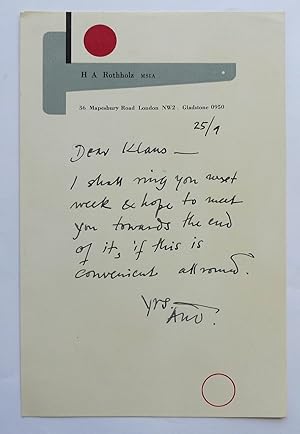 H A Rothholz MSIA
36 Mapesbury Road London NW2 . Gladstone 0950
25/9
Dear Klaus —
I shall ring you next
week & hope to meet
you towards the end
of it, if this is
convenient all round.
Yrs.